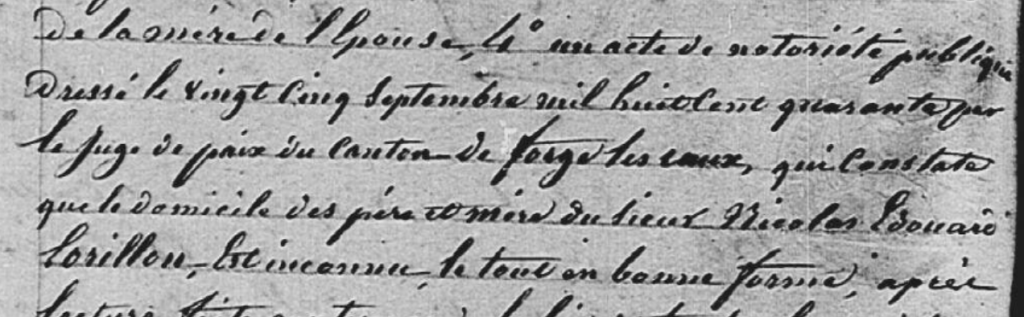 de la mère de l'Epouse, 4° un acte de notoriété publique
dressé le vingt cinq Septembre mil huit cent quarante par
le Juge de paix du canton de forge les eaux, qui constate
que le domicile des père et mère du sieur Nicolas Edouard
Lorillon, Est inconnu, le tout en bonne forme, après
lecture